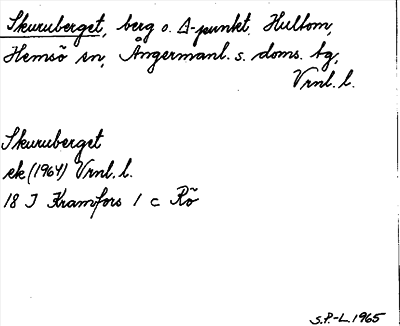 Skuruberget, berg o. Δ-punkt, Hultom,
Hemsö sn, Ångermanl. s. doms. tg,
Vrnl. l.
Skuruberget
ek (1964) Vrnl. l.
18 J Kramfors 1 c Rö
S.P.-L. 1965